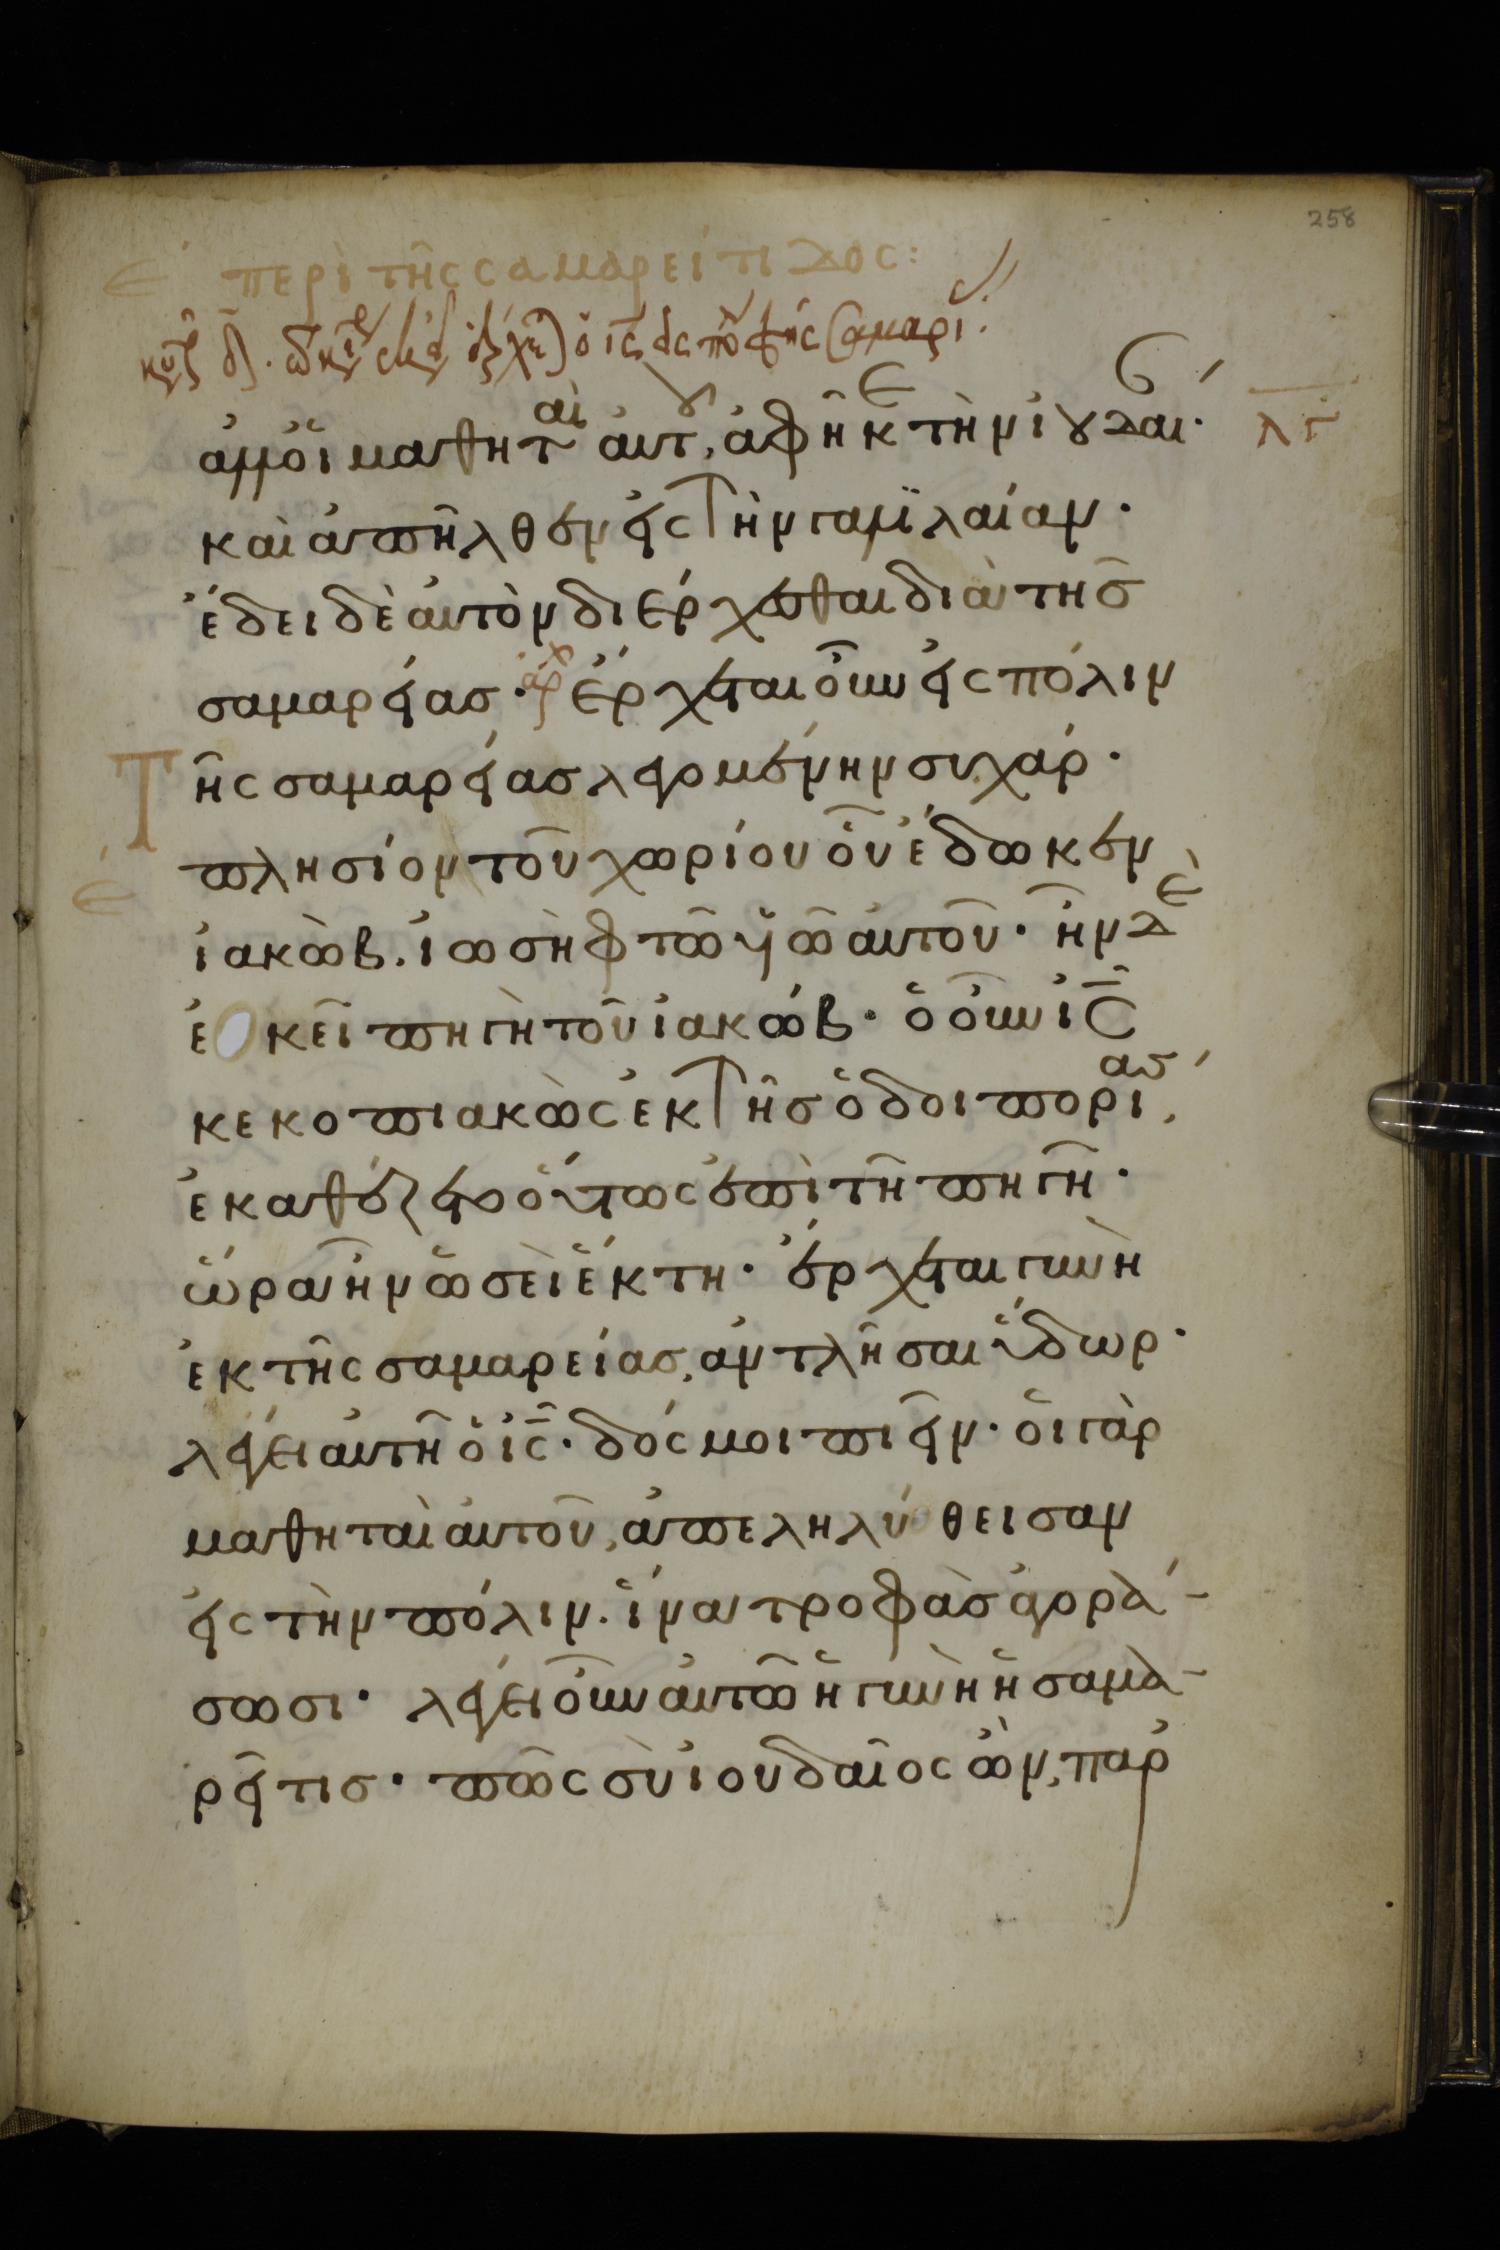 258
ε´ περὶ τῆς σαμαρείτιδος:
ὁ ις
λγ
ἀμμὸἱ μαθηταὶ ἀυτου, ἀφῆκε τὴν ἰουδαι·
καὶ ἀπῆλθεν εἰς τὴν γαλιλαίαν·
ἔδει δὲ ἀυτὸν διέρχεσθαι διὰ τῆσ
σαμαρείασ· ἀρχ ἔρχεται οὖν εἰς πόλιν
τῆς σαμαρείασ λεγομένην συχάρ·
ε´
πλησίον τοῦ χωρίου ὃυ ἔδωκεν
ἰακὼβ. ἰωσὴφ τῶ υἱῶ ἀυτοῦ· ἦν δὲ
ἐκεῖ πηγὴ τοῦ ἰακώβ· ὁ οὖν ις
κεκοπιακὼς ἐκ τῆσ ὁδοιπορίασ,
ἐκαθέζετο ὅυτως ἐπὶ τῆ πηγῆ·
ὥρα ἦν ὡσεὶ ἕκτη· ἔρχεται γυνὴ
ἐκ τῆς σαμαρείασ, ἀντλῆσαι ὕδωρ·
λέγει ἀυτῆ ὁ ις· δός μοι πιεῖν· ὁι γὰρ
μαθηταὶ ἀυτοῦ, ἀπεληλύθεισαν
εἰς τὴν πόλιν. ἵνα τροφὰσ ἀγορά-
σωσι· λέγει οὖν ἀυτῶ ἡ γυνὴ ἡ σαμα-
ρεῖτισ· πῶς σὺ ἰουδαῖος ὢν, παρ